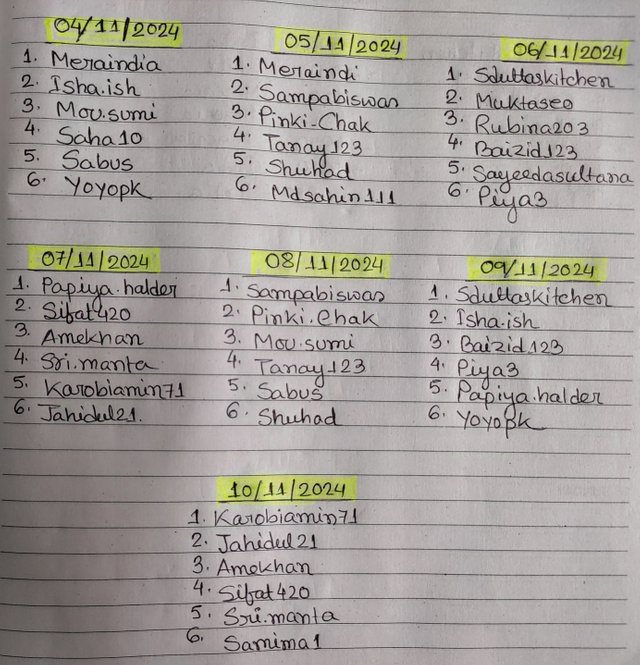 04/11/2024
1. Meraindia
2. Isha.ish
3. Mou.sumi
4. Saha10
5. Sabus
6. Yoyopk
05/11/2024
1. Meraindi
2. Sampabiswas
3. Pinki-Chak
4. Tanay123
5. Shuhad
6. Mdsahin111
06/11/2024
1. Sduttaskitchen
2. Muktaseo
3. Rubina203
4. Baizid123
5. Sayeedasultana
6. Piya3
07/11/2024
1. Papiya.halder
2. Sifat420
3. Amekhan
4. Sri.manta
5. Karobiamin71
6. Jahidul21.
08/11/2024
1. Sampabiswas
2. Pinki.Chak
3. Mou.sumi
4. Tanay123
5. Sabus
6. Shuhad
09/11/2024
1. Sduttaskitchen
2. Isha.ish
3. Baizid123
4. Piya3
5. Papiya.halder
6. Yoyopk
10/11/2024
1. Karobiamin71
2. Jahidul21
3. Amekhan
4. Sifat420
5. Sri.manta
6. Samima1